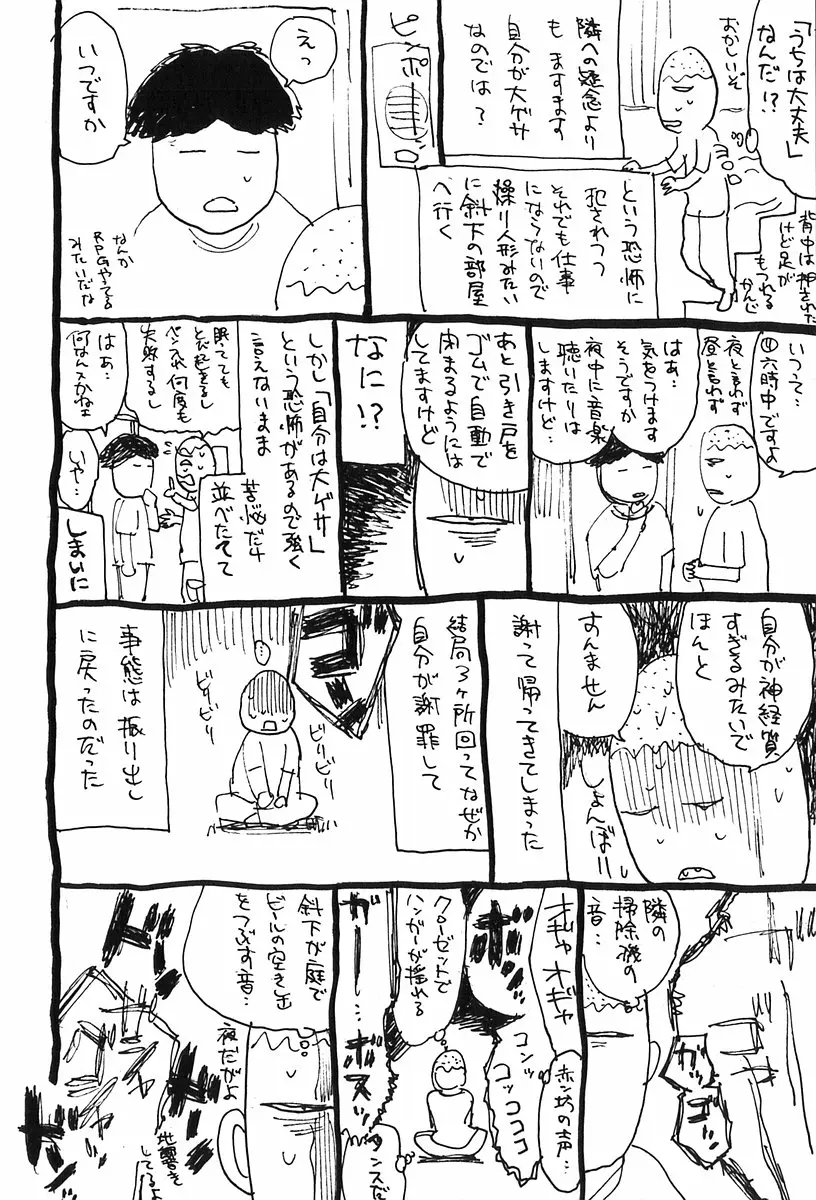 「うちは大丈夫」
なんだ!?
おかしいぞ
背中は押された
けど足が
もつれる
かんじ
隣への疑念より
も ますます
自分が大ゲサ
なのでは?
という恐怖に
犯されつつ
それでも仕事
にならないので
操り人形みたい
に斜下の部屋
へ行く
ピンポーン
えっ
いつですか
なんか
RPGやってる
みたいだな
いつって…
四六時中ですよ
夜と言わず
昼と言わず
はぁ…
気をつけます
そうですか
夜中に音楽
聴いたりは
しますけど…
あと引き戸を
ゴムで自動で
閉まるようには
してますけど
なに!?
しかし「自分は大ゲサ」
という恐怖があるので強く
言えないまま
苦悩だけ
並べたてて
眠ってても
とび起きるし
ペン入れ何度も
失敗するし
はぁ…
何なんスかねェ
いや…
しまいに
自分が神経質
すぎるみたいで
ほんと
すんません
しょんぼり
謝って帰ってきてしまった
結局3ヶ所回ってなぜか
自分が謝罪して
ゴン
ビリビリ
ビリビリ
事態は振り出し
に戻ったのだった
ガッ
ゴン
隣の
掃除機の
音…
オギャオギャ
赤ン坊の声…
コンッ
コッコココ
クローゼットで
ハンガーが揺れる
ガー…
ボスッ
タンスだ
斜下が庭で
ビールの空き缶
をつぶす音…
夜だがよ
地響き
してるよ